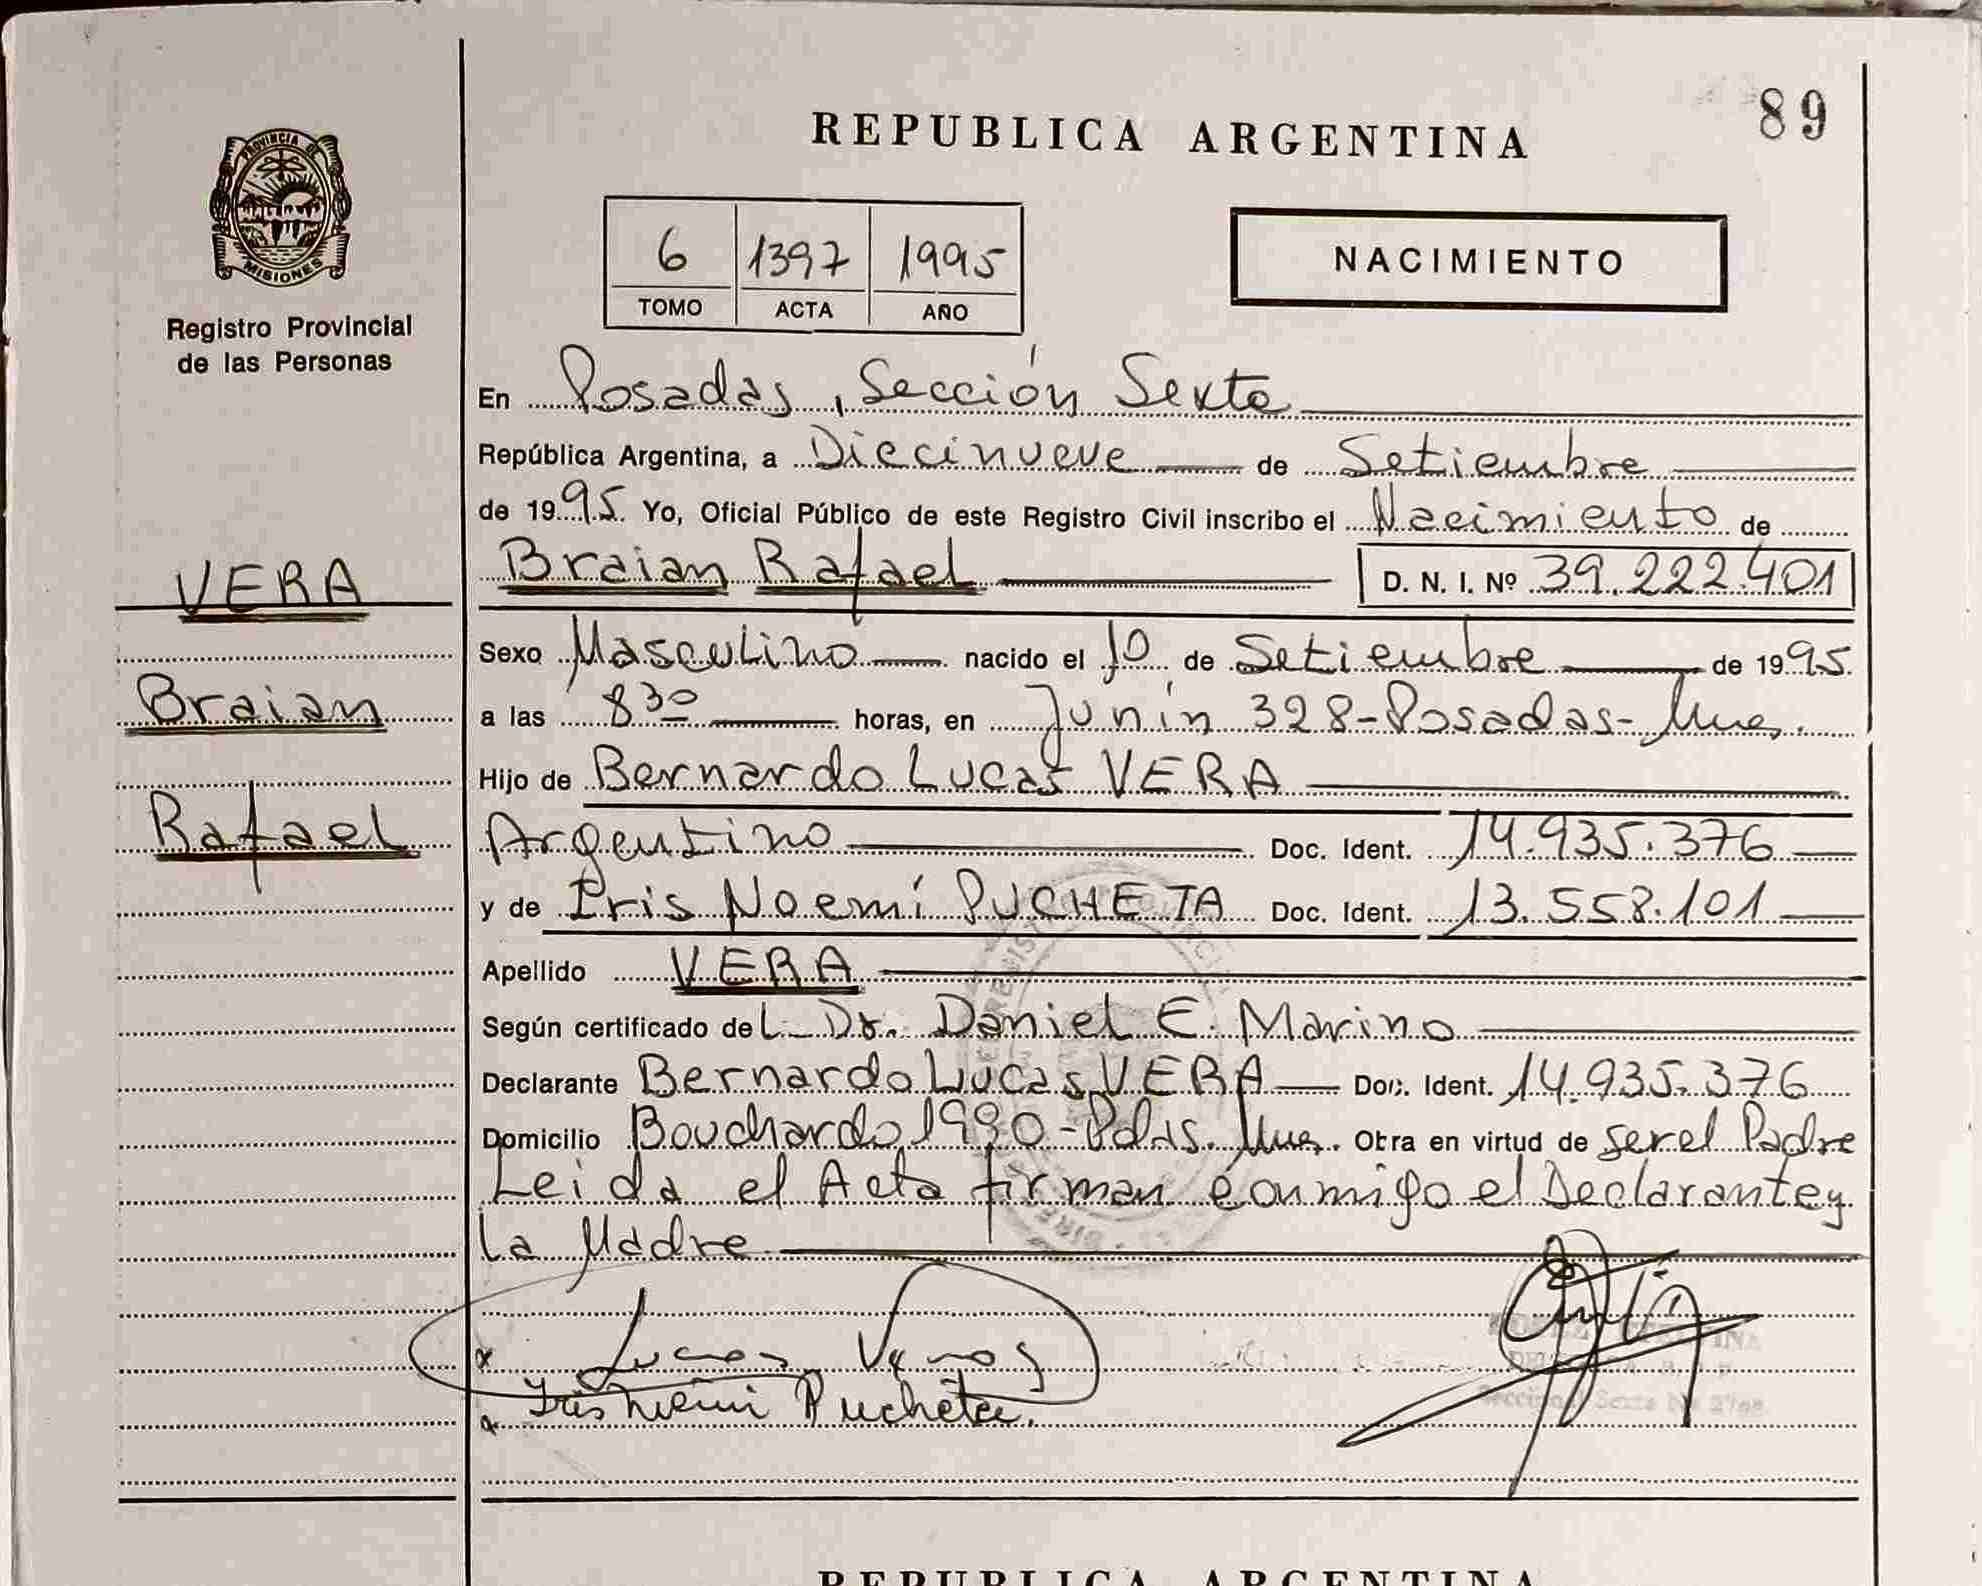 REPUBLICA ARGENTINA
89
PROVINCIA DE
MISIONES
Registro Provincial
de las Personas
6 1397 1995
TOMO ACTA AÑO
NACIMIENTO
En Posadas, Sección Sexta
República Argentina, a Diecinueve de Setiembre
de 1995 Yo, Oficial Público de este Registro Civil inscribo el Nacimiento de
Braian Rafael D. N. I. Nº 39.222.401
VERA
Braian
Rafael
Sexo Masculino nacido el 10 de Setiembre de 1995
a las 8 30 horas, en Junín 328-Posadas-Mnes.
Hijo de Bernardo Lucas VERA
Argentino Doc. Ident. 14.935.376
y de Iris Noemí PUCHETA Doc. Ident. 13.558.101
Apellido VERA
Según certificado del Dr. Daniel E. Marino
Declarante Bernardo Lucas VERA Doc. Ident. 14.935.376
Domicilio Bouchardo 1990-Pdas. Mnes. Obra en virtud de ser el Padre
Leída el Acta firman conmigo el Declarante y
la Madre
Lucas
Iris Noemi Pucheta.
REPUBLICA ARGENTINA